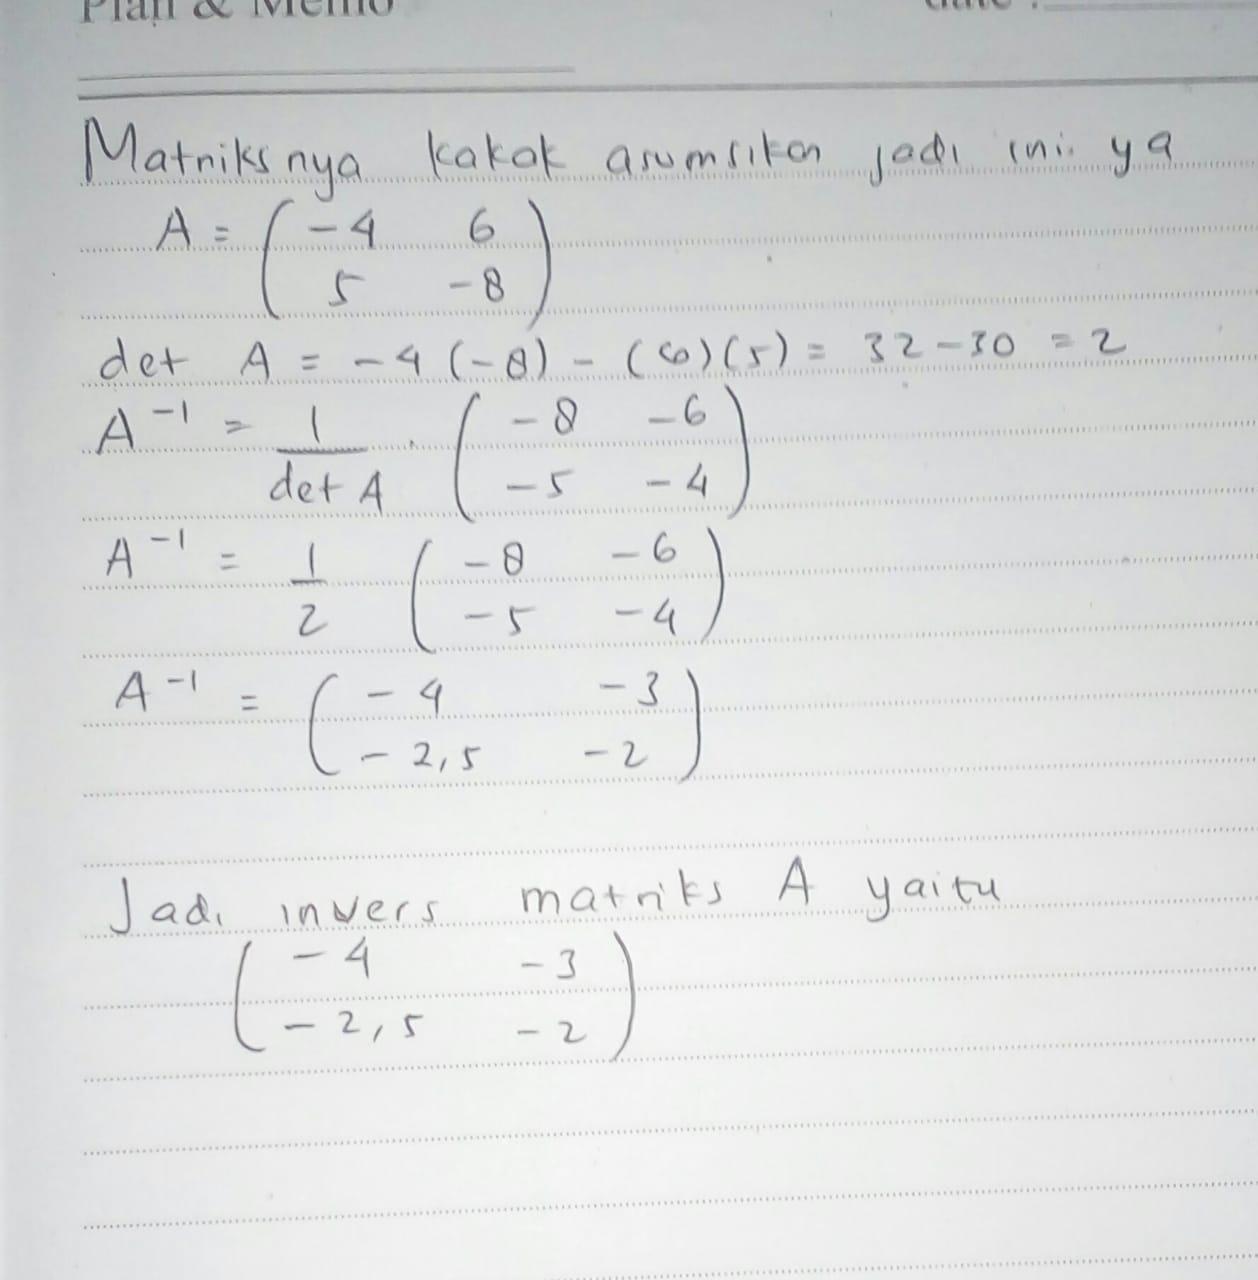 Plan & Memo date :
Matriksnya kakak asumsikan jadi ini ya
A = ( -4 6
5 -8 )
det A = -4 (-8) - (6)(5) = 32 - 30 = 2
A⁻¹ = 1/det A . ( -8 -6
-5 -4 )
A⁻¹ = 1/2 ( -8 -6
-5 -4 )
A⁻¹ = ( -4 -3
-2,5 -2 )
Jadi invers matriks A yaitu
( -4 -3
-2,5 -2 )